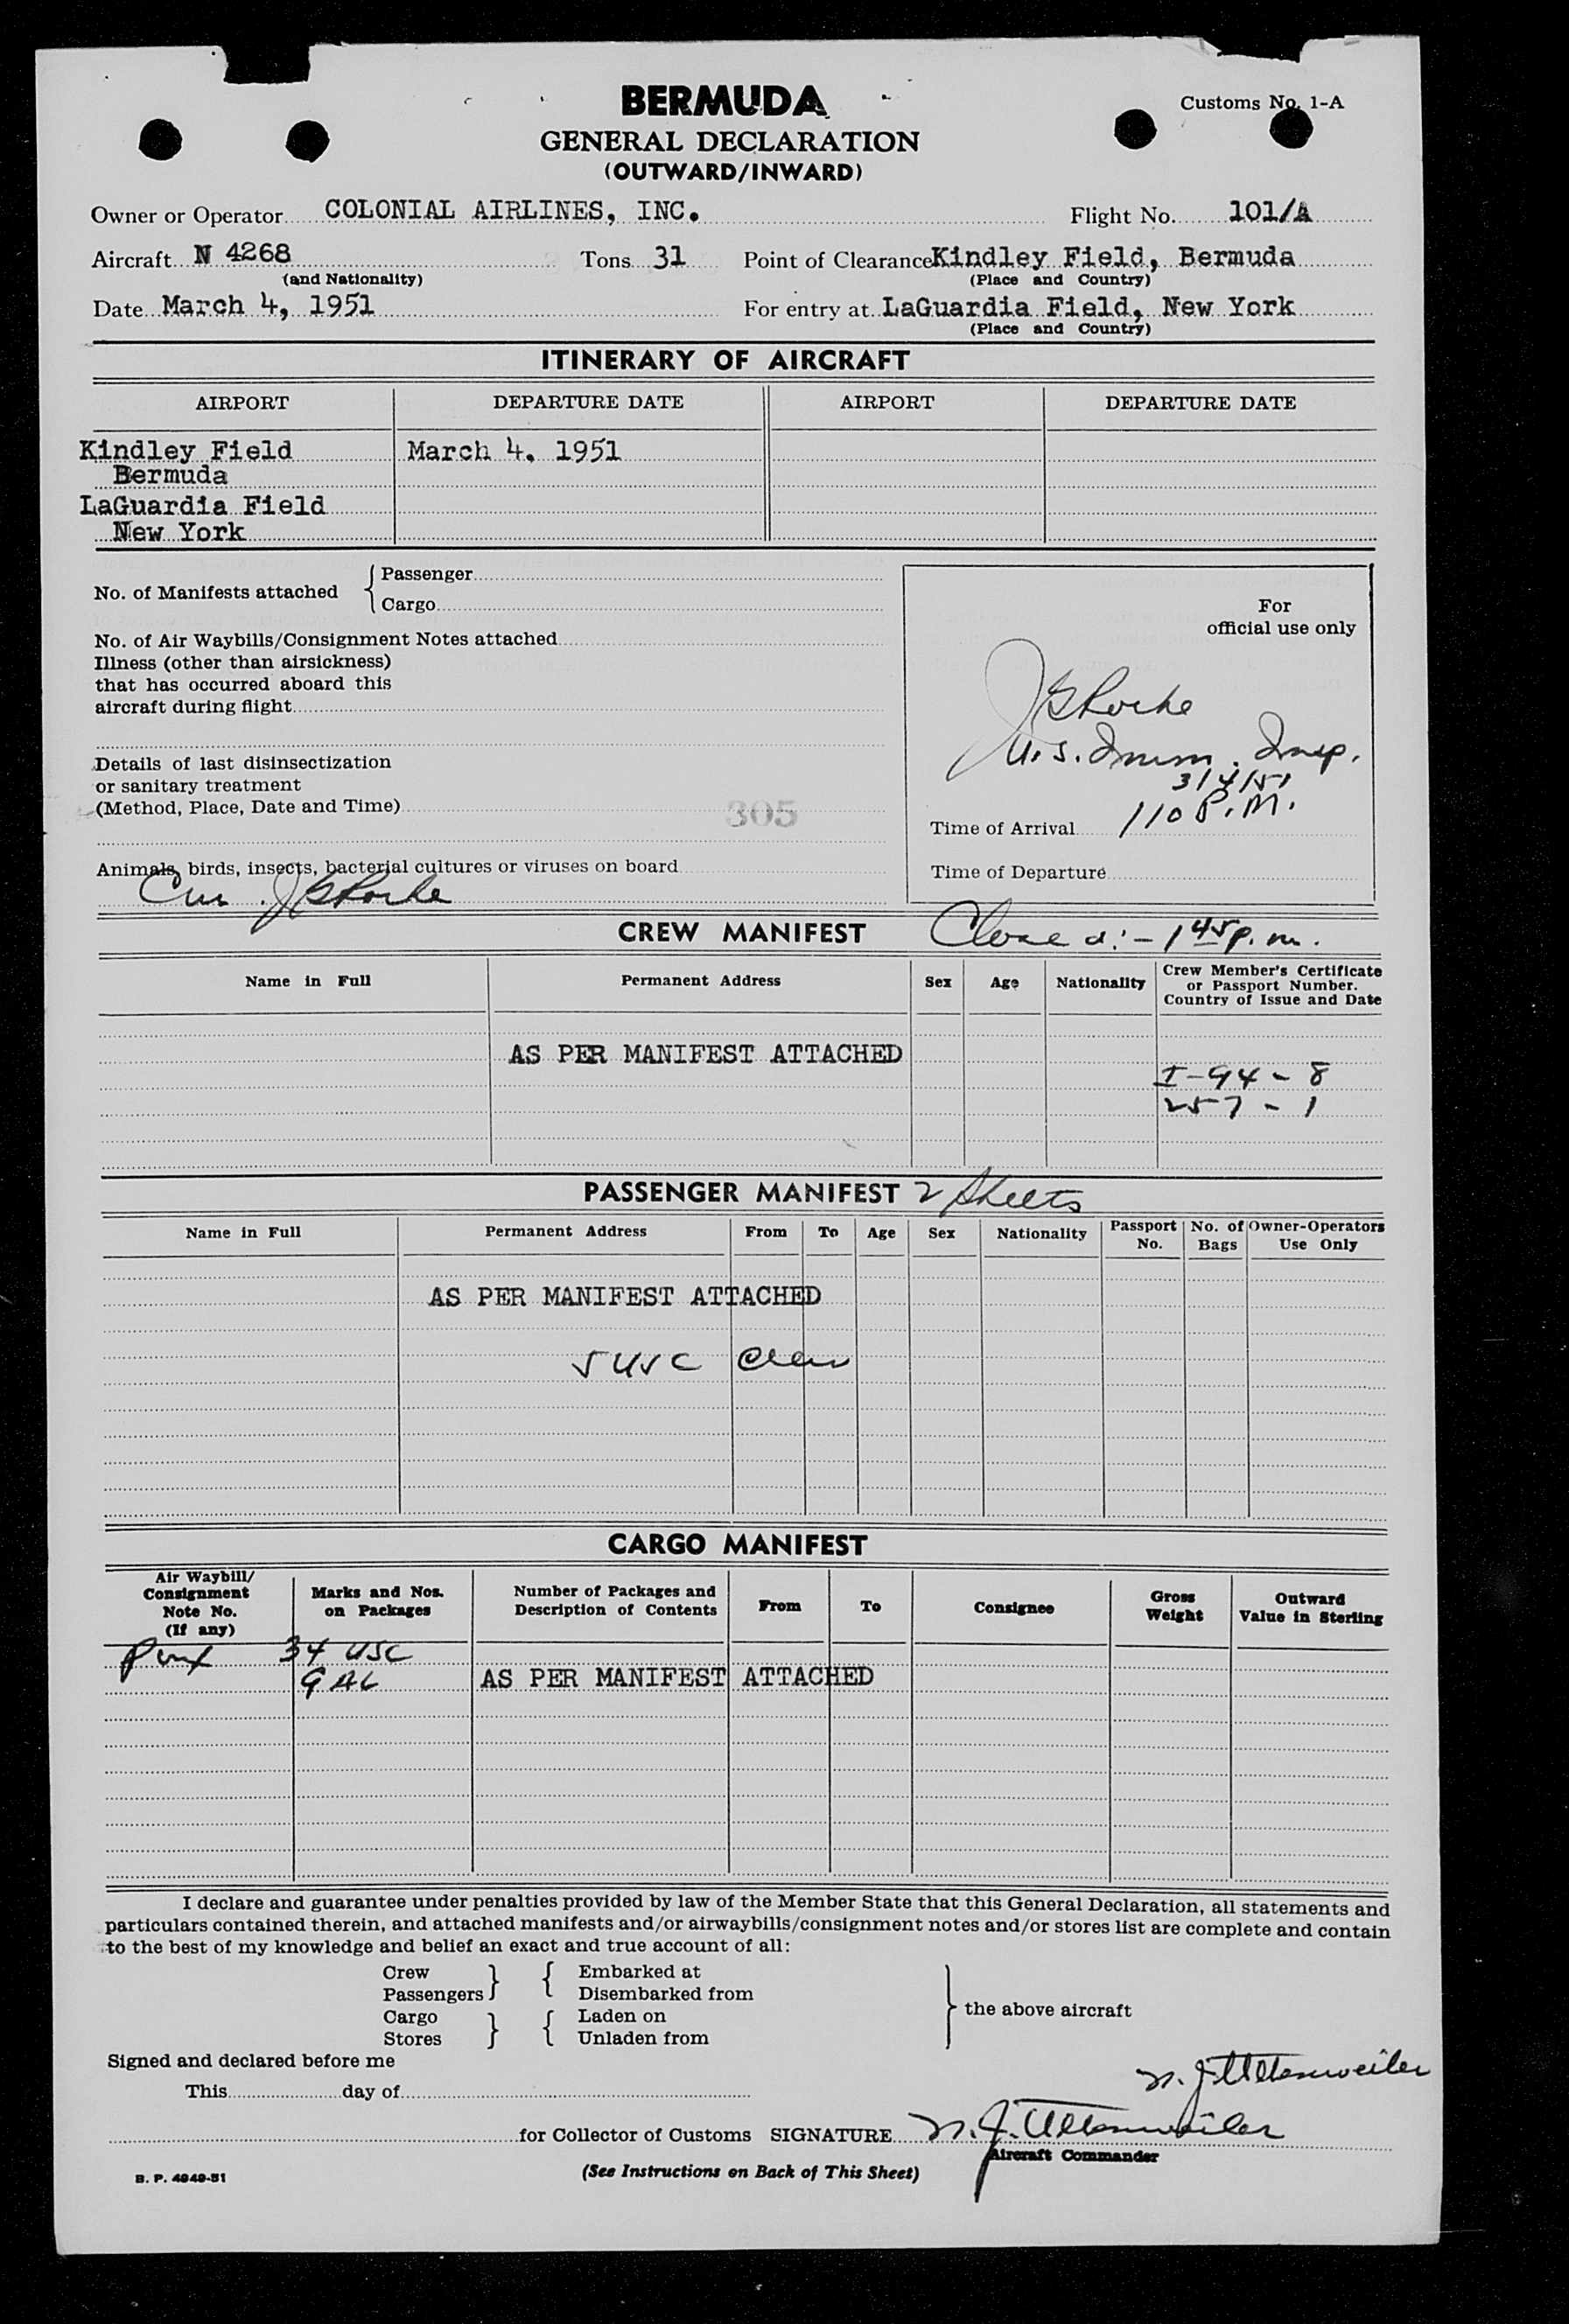 BERMUDA
Customs No. 1-A
GENERAL DECLARATION
(OUTWARD/INWARD)
Owner or Operator COLONIAL AIRLINES, INC. Flight No. 101/A
Aircraft N 4268 Tons 31 Point of Clearance Kindley Field, Bermuda
(and Nationality) (Place and Country)
Date March 4, 1951 For entry at LaGuardia Field, New York
(Place and Country)
ITINERARY OF AIRCRAFT
AIRPORT DEPARTURE DATE AIRPORT DEPARTURE DATE
Kindley Field March 4, 1951
Bermuda
LaGuardia Field
New York
No. of Manifests attached { Passenger
Cargo
For
official use only
No. of Air Waybills/Consignment Notes attached
Illness (other than airsickness)
that has occurred aboard this
aircraft during flight
U.S. Imm. Insp.
3/4/51
Details of last disinsectization
or sanitary treatment
(Method, Place, Date and Time)
305
Time of Arrival 110 P.M.
Animals, birds, insects, bacterial cultures or viruses on board
Time of Departure
CREW MANIFEST
145 p.m.
Name in Full Permanent Address Sex Age Nationality Crew Member's Certificate
or Passport Number.
Country of Issue and Date
AS PER MANIFEST ATTACHED
I-94 - 8
257 - 1
PASSENGER MANIFEST 2 Sheets
Name in Full Permanent Address From To Age Sex Nationality Passport No. No. of Bags Owner-Operators Use Only
AS PER MANIFEST ATTACHED
5 USC Crew
CARGO MANIFEST
Air Waybill/
Consignment
Note No.
(If any)
Marks and Nos.
on Packages
Number of Packages and
Description of Contents
From To Consignee
Gross
Weight
Outward
Value in Sterling
34 USC
9 AL
AS PER MANIFEST ATTACHED
I declare and guarantee under penalties provided by law of the Member State that this General Declaration, all statements and
particulars contained therein, and attached manifests and/or airwaybills/consignment notes and/or stores list are complete and contain
to the best of my knowledge and belief an exact and true account of all:
Crew } { Embarked at
Passengers Disembarked from
Cargo } { Laden on
Stores Unladen from
} the above aircraft
Signed and declared before me
This day of
N. J. Uttenweiler
for Collector of Customs SIGNATURE N. J. Uttenweiler
Aircraft Commander
B. P. 4949-51
(See Instructions on Back of This Sheet)